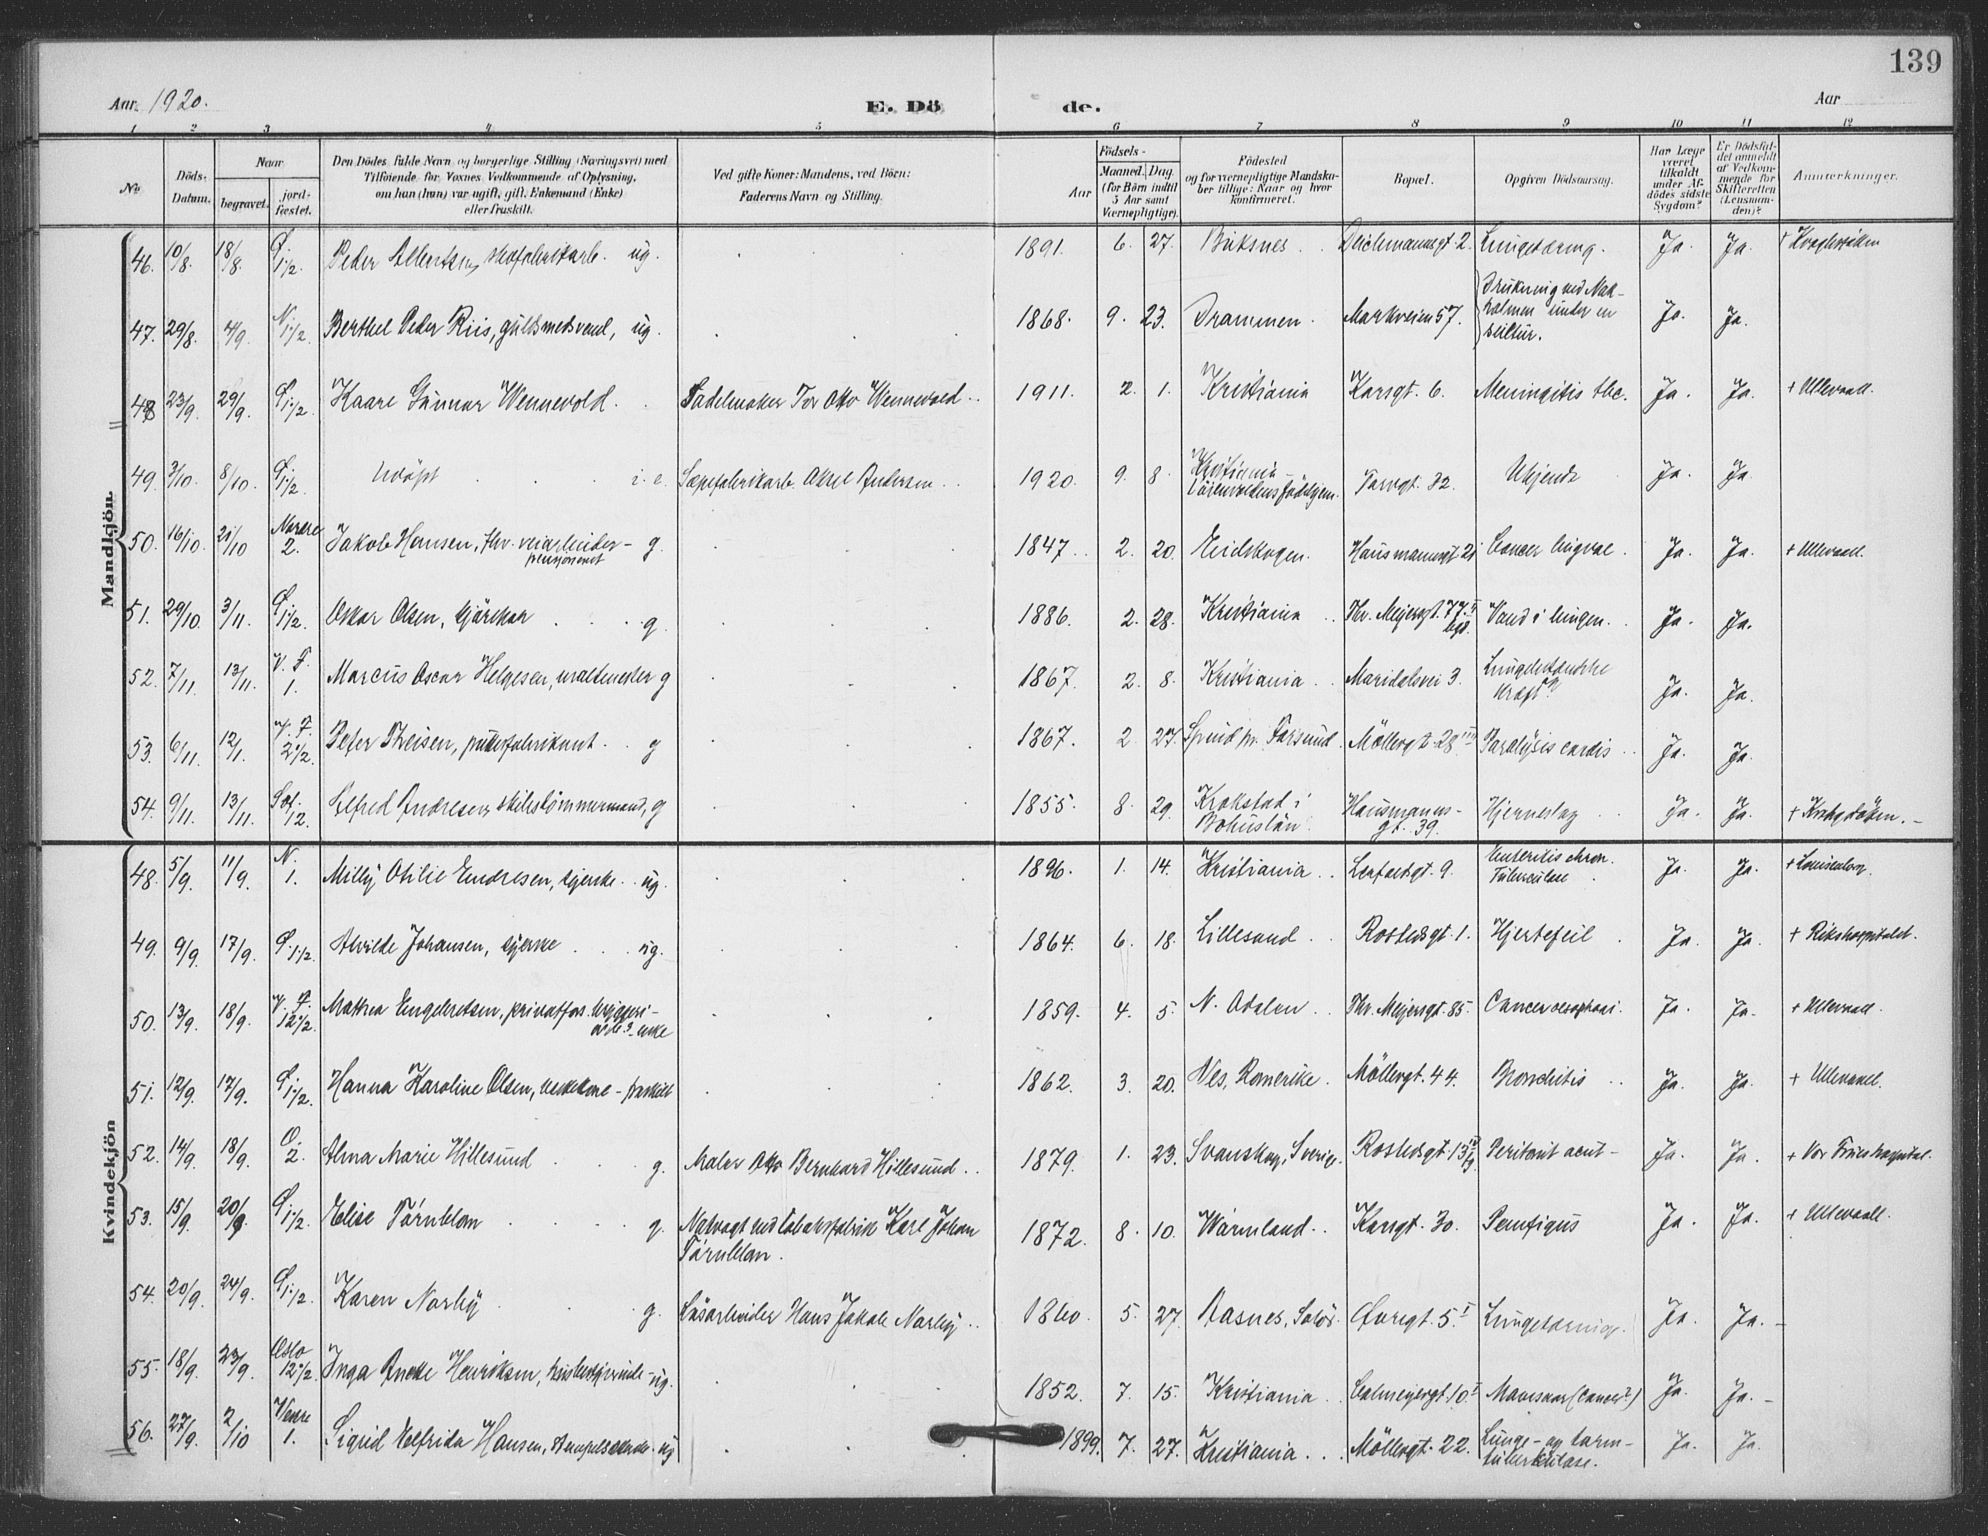 139
Aar 1920.
E. Dö
de.
Aar
1 2 3 4 5 6 7 8 9 10 11 12
No
Döds-
Datum.
Naar
begravet.
jord-
fæstet.
Den Dödes fulde Navn og borgerlige Stilling (Næringsvei) med
Tilföiende for Voxnes Vedkommende af Oplysning,
om han (hun) var ugift, gift, Enkemand (Enke)
eller fraskilt.
Ved gifte Koner: Mandens, ved Börn:
Faderens Navn og Stilling.
Födsels-
Aar
Maaned. Dag.
(for Börn indtil
5 Aar samt
Værnepligtige).
Födested
og for værnepligtige Mandska-
ber tillige: Naar og hvor
konfirmeret.
Bopæl.
Opgiven Dödsaarsag.
Har Læge
været
tilkaldt
under Af-
dödes sidste
Sygdom?
Er Dödsfal-
det anmeldt
af Vedkom-
mende for
Skifteretten
(Lensman-
den)?
Anmærkninger.
Mandkjön
46. 10/8. 18/8. 1 1/2. Peder Albertsen, skofabrikarb. ug. 1891. 6. 27. Buksnes. Deichmannsgt 2. Lungetæring. Ja. Ja. + Krogstøtten
47. 29/8. 4/9. N. 1 1/2. Berthel Peder Riis, guldsmedsvend, ug. 1868. 9. 23. Drammen. Markveien 57. Drukning ved Nak-
holmen under en
seiltur. Ja. Ja.
48 23/9. 29/9. 1 1/2. Kaare Gunnar Wennevold. Sadelmaker Tor Otto Wennevold. 1911. 2. 1. Kristiania Karsgt. 6. Meningitis tbc. Ja. Ja. + Ullevaall.
49. 3/10. 8/10. 1 1/2. Udøpt i. e. Sæpefabrikarb. Aksel Andersen. 1920. 9. 8. Kristiania
Fødehjem. Torvgt. 32. Ukjendt Ja. Ja.
50. 16/10. 21/10 Nordre
2. Jakob Hansen, fhv. veiarbeider-
pensionert g. 1847. 2. 20. Eidskogen Hausmannsgt 21 Cancer lingvae. Ja. Ja. + Ullevaall.
51. 29/10. 3/11. 1 1/2. Oskar Olsen, kjørekar g. 1886. 2. 28. Kristiania Thv. Meijersgt. 77 II
bgd. Vand i lungen. Ja. Ja.
52. 7/11. 13/11. V. F.
1. Marcus Oscar Helgesen, maltmester g 1867. 2. 8. Kristiania Maridalsvei 3. Lungebetændelse
kræft? Ja. Ja.
53. 6/11. 12/1. V. F.
2 1/2. Peter Theisen, puderfabrikant. g 1867. 2 27. Spind pr. Farsund. Möllergt. 28 III Paralysis cordis Ja. Ja.
54. 9/11. 13/11. Sof.
12. Alfred Andresen, skibstømmermand, g 1855. 8. 29. Krokstad i
Bohuslän. Hausmanns-
gt. 39. Hjerneslag Ja. Ja. + Krohgstøtten.
Kvindekjön
48. 5/9. 11/9. N.
1. Milly Otilie Endresen, syerske. ug. 1896. 1. 14. Kristiania Leirfaldsgt. 9. Enteritis chron.
Tuberculose Ja. Ja. + Louisenberg
49. 9/9. 17/9. 1 1/2. Alvilde Johansen, syerske ug. 1864. 6. 18. Lillesand Rostedsgt. 1. Hjertefeil Ja. Ja. + Rikshospitalet.
50. 13/9. 18/9. V. F.
12 1/2. Mathea Engebretsen, privatfors. bryggeri-
arb.s enke 1859. 4. 5. N. Odalen Thv. Meijersgt. 85. Cancer oesophagi. Ja. Ja. + Ullevaall.
51. 12/9. 17/9. 1 1/2. Hanna Karoline Olsen, vaskekone - fraskilt 1862. 3. 20. Nes, Romerike. Möllergt. 44. Bronchitis Ja. Ja. + Ullevaall.
52. 14/9. 18/9. O.
2. Alma Marie Hillesund g. Maler Otto Bernhard Hillesund. 1879. 1. 23. Svanskog, Sverige. Rostedsgt. 13 Peritonit acut - Ja. Ja. + Vor Frues hospital.
53. 15/9. 20/9. 1 1/2. Elise Törnblom g. Natvagt ved tobaksfabrik Karl Johan
Törnblom. 1872. 8. 10. Wärmland Korsgt. 30. Pemfigus Ja. Ja. + Ullevaall.
54. 20/9. 24/9. 1 1/2. Karen Norby g. Løsarbeider Hans Jakob Norby 1860. 5. 27. Aasnes, Solör. Øvregt. 5 I Lungetæring. Ja. Ja. -
55. 18/9. 23/9. Oslo
12 1/2. Inga Anette Henriksen, husbestyrerinde - ug. 1852. 7. 15. Kristiania Calmeyergt. 10 I Mavesaar (cancer?) Ja. Ja. -
56. 27/9. 2/10 Vestre
1. Sigrid Valfrida Hansen, ug 1899. 7. 27. Kristiania Möllergt. 22. Lunge- og tarm-
tuberkulose. Ja. Ja.